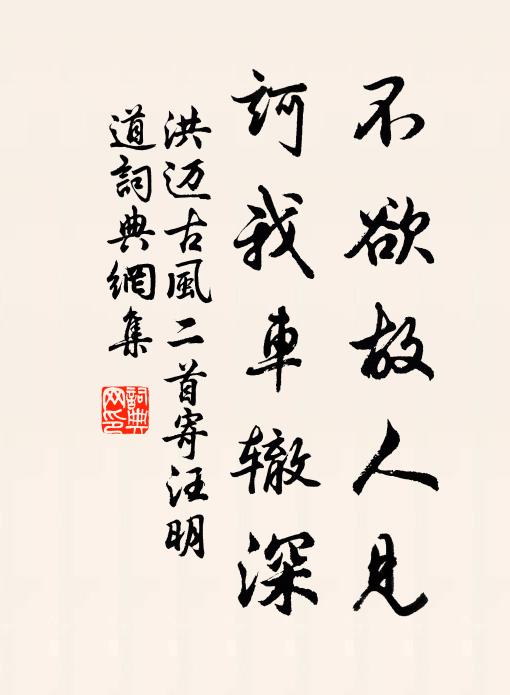 不欲故人见
訶我車辙深
洪迈古風二首寄汪明
道詞典網集
詞典网印